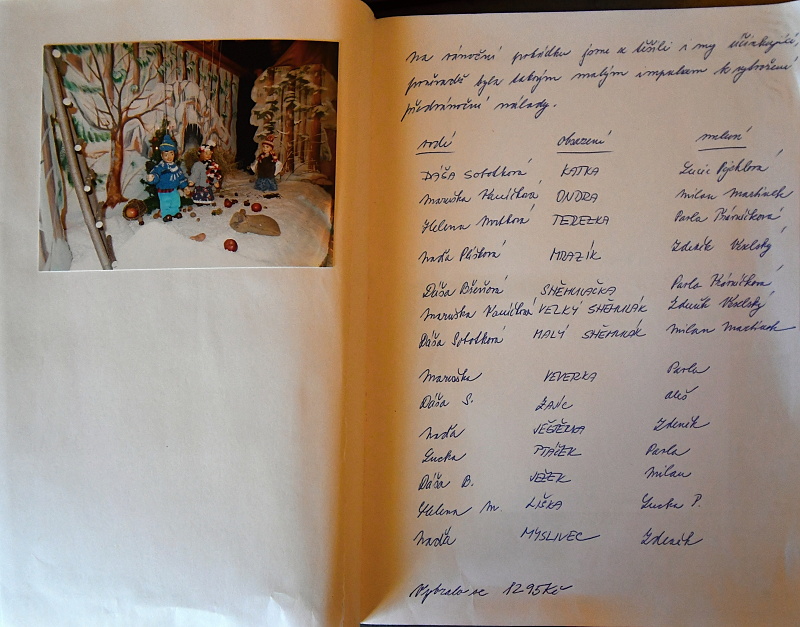 Na vánoční pohádku jsme se těšili i my účinkující,
poněvadž byla takovým malým impulsem k vytvoření
předvánoční nálady.
vodí obsazení mluví
DÁŠA Sobotková KATKA Lucie Pýchlová
Maruška Vaníčková ONDRA Milan Martinek
Helena TEREZKA Pavla
Naďa MRAZÍK Zdeněk Veselský
Dáša SNĚHULAČKA Pavla
Maruška Vaníčková VELKÝ SNĚHULÁK Zdeněk Veselský
Dáša Sobotková MALÝ SNĚHULÁK Milan Martinek
Maruška VEVERKA Pavla
Dáša S. ZAJÍC Aleš
Naďa JEŠTĚRKA Zdeněk
Lucka PTÁČEK Pavla
Dáša B. JEŽEK Milan
Helena M. LIŠKA Lucka P.
Naďa MYSLIVEC Zdeněk
Vybralo se 1295Kč